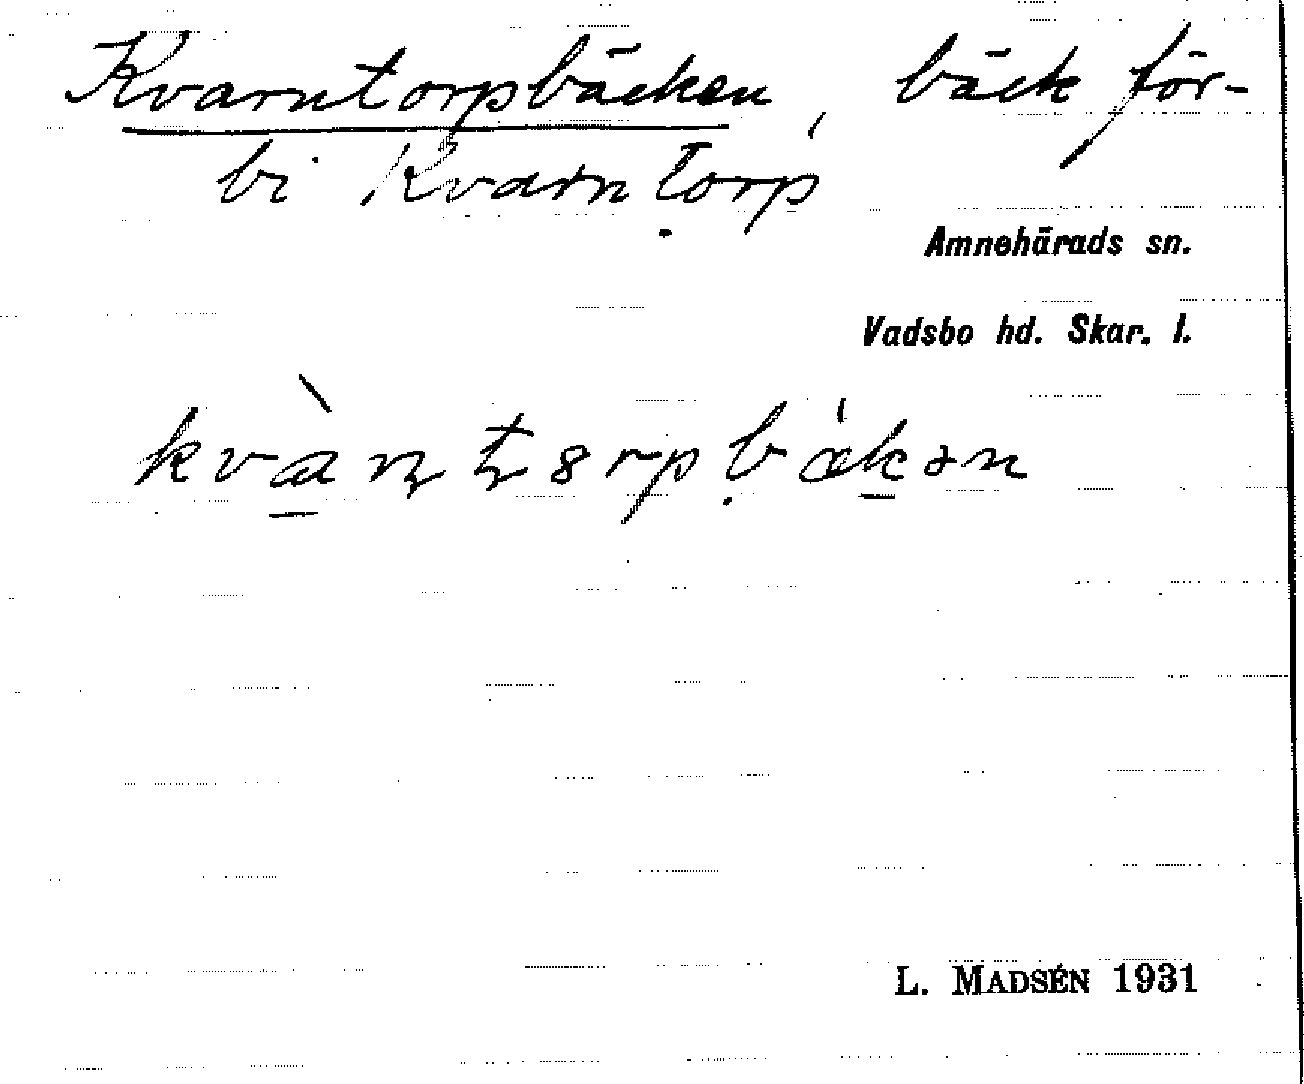 Kvarntorpbäcken, bäck för-
bi Kvarntorp
Amnehärads sn.
Vadsbo hd. Skar. l.
L. MADSÉN 1931